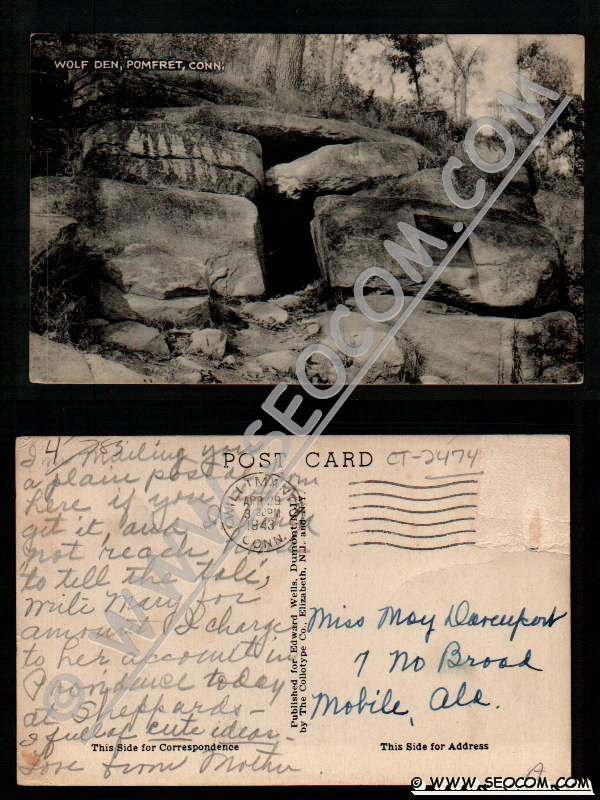 WOLF DEN, POMFRET, CONN.
© WWW.SEOCOM.COM
POST CARD
CT-2474
WILLIMANTIC
APR 29
3 PM
1943
CONN.
I'm mailing you
a plain post
here if you
get it, and
not reach
to tell the tale,
write Mary for
amount I charge
to her account in
Providence today
at Sheppards -
I full of cute ideas.
Love from Mother
Published for Edward Wells, Dumont, N.J.
by The Collotype Co., Elizabeth, N.J. and N.Y.
Miss May Davenport
7 No Broad
Mobile, Ala.
This Side for Correspondence
This Side for Address
© WWW.SEOCOM.COM